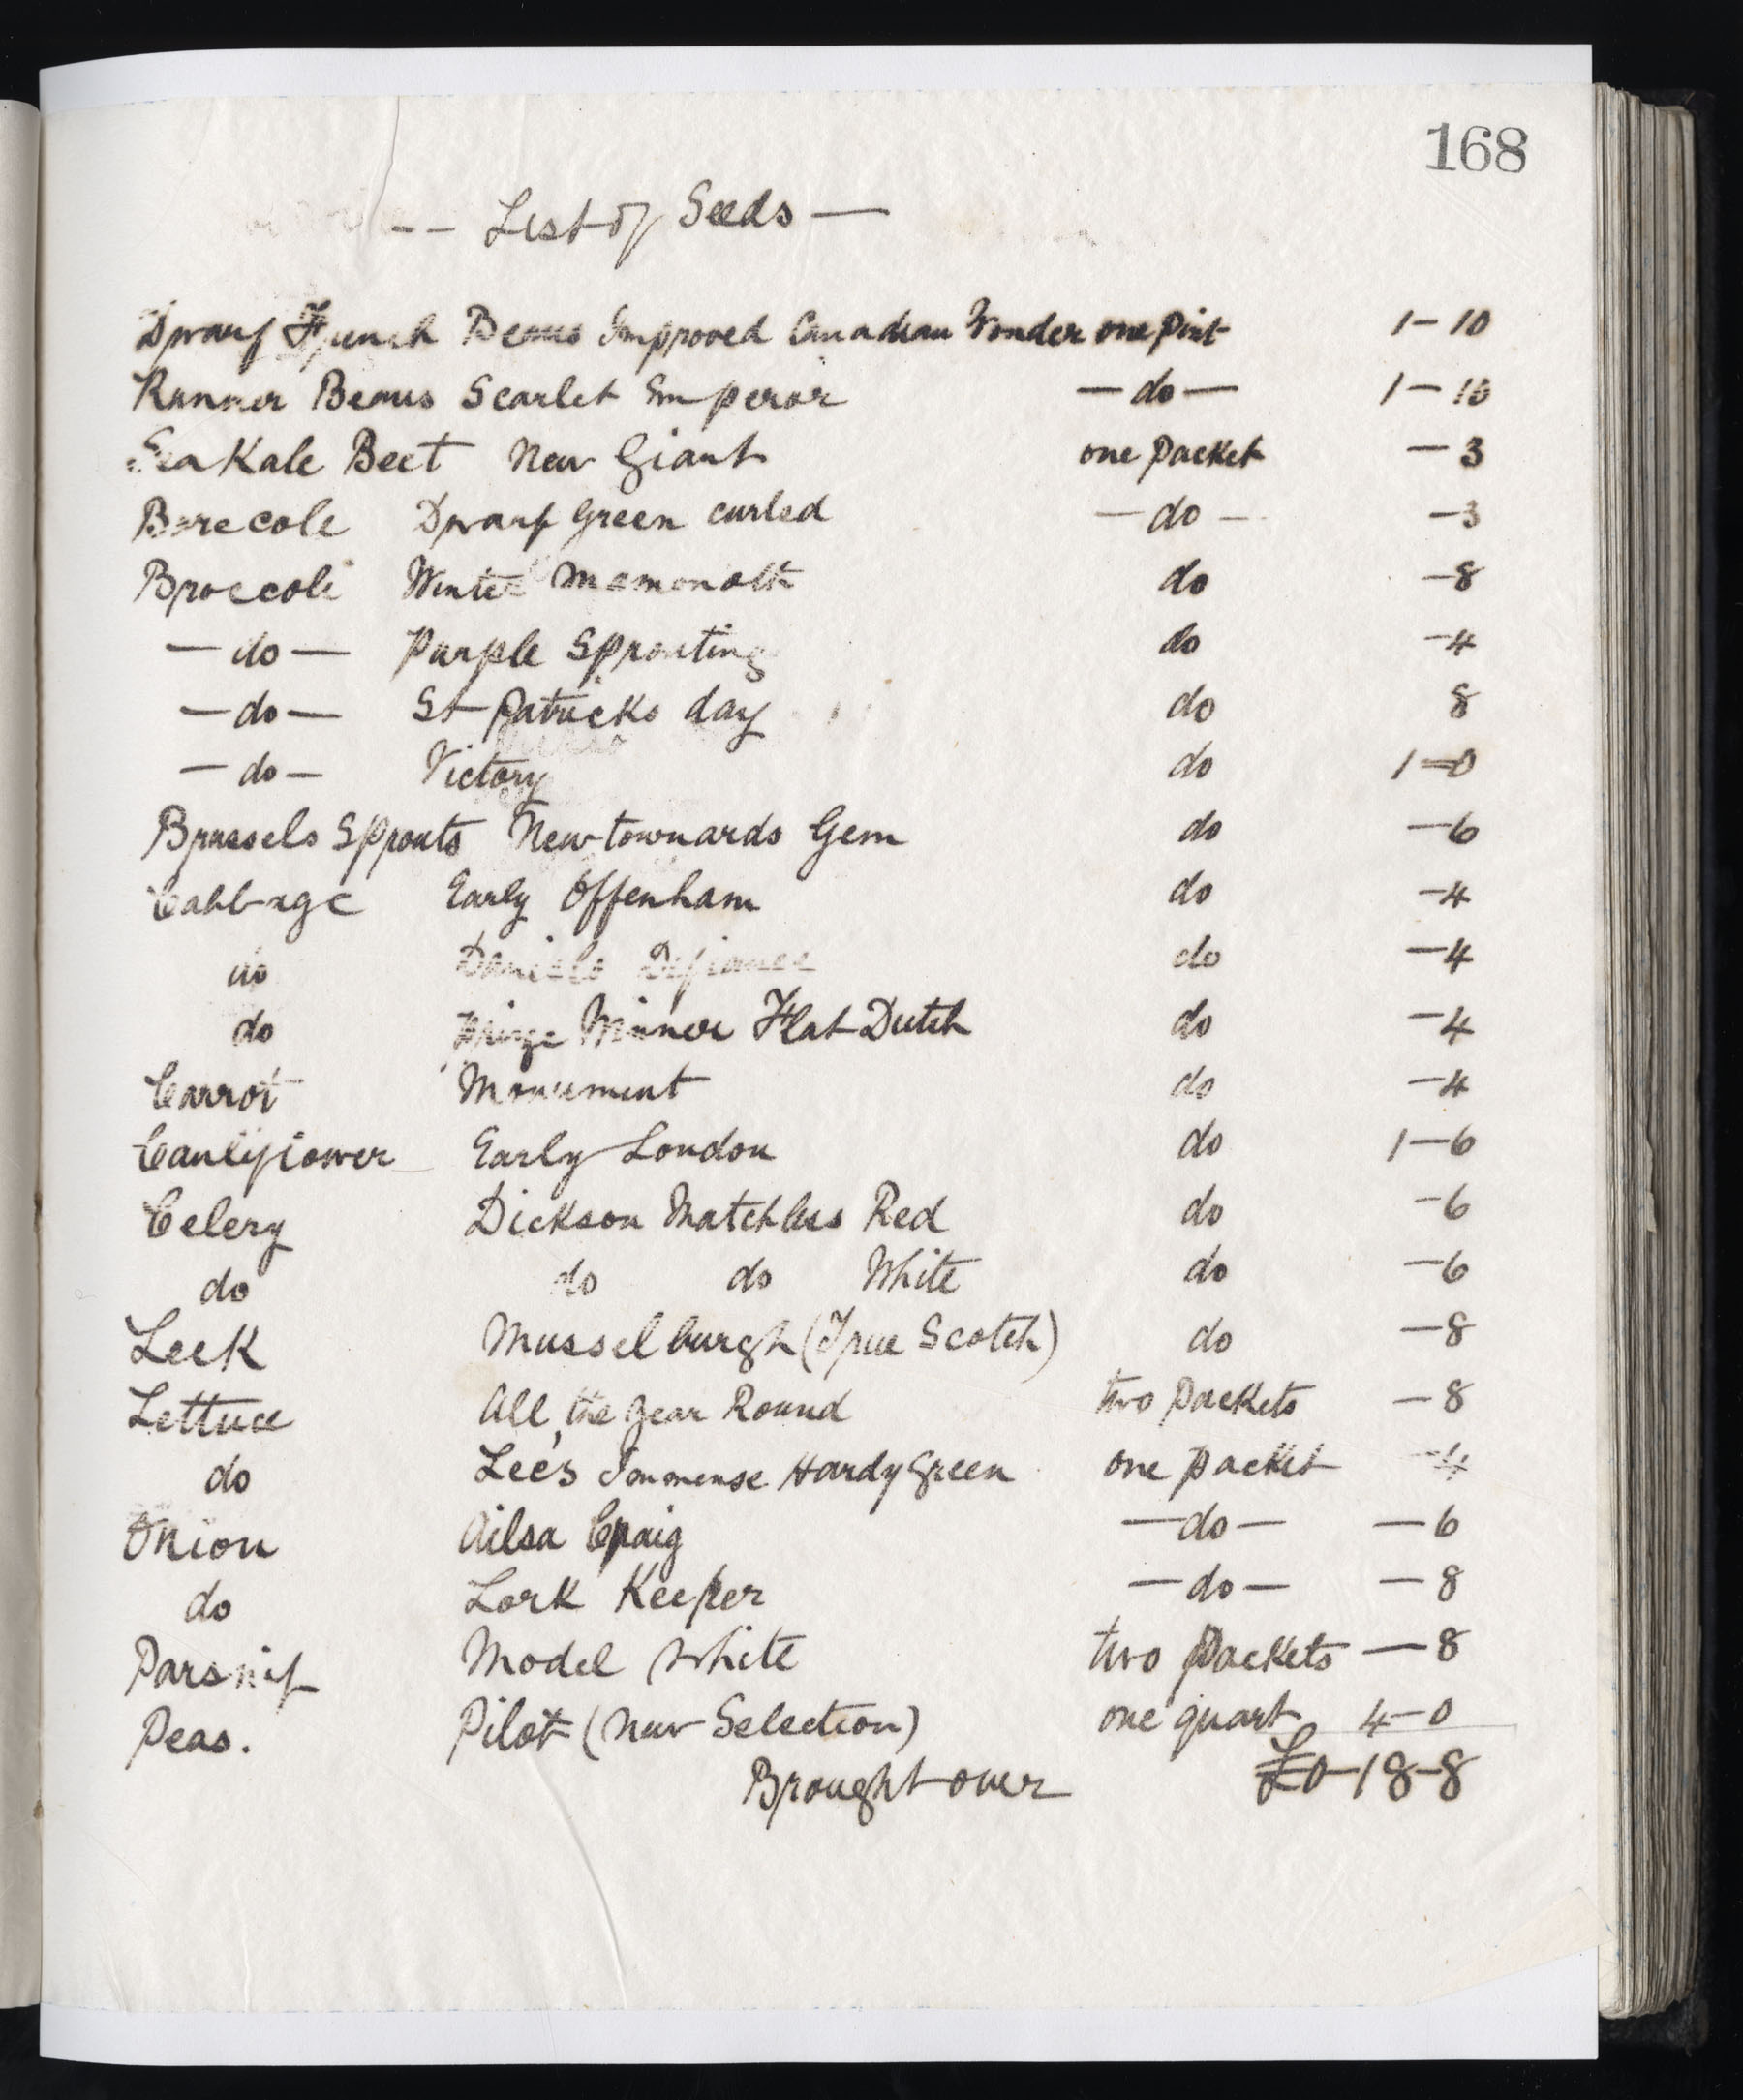 168
-- List of Seeds —
Dwarf French Beans Improved Canadian Wonder one Pint 1-10
Runner Beans Scarlet Emperor — do — 1-10
Sea Kale Beet New Giant one Packet - 3
Borecole Dwarf Green curled - do - - 3
Broccoli Winter Mammoth do - 8
- do - Purple Sprouting do - 4
- do - St Patricks day do 8
- do - Victory do 1=0
Brussels Sprouts Newtownards Gem do - 6
Cabbage Early Offenham do - 4
do Daniels Defiance do - 4
do Prize Winner Flat Dutch do - 4
Carrot Monument do - 4
Cauliflower Early London do 1-6
Celery Dickson Matchless Red do - 6
do do do White do - 6
Leek Musselburgh (True Scotch) do - 8
Lettuce All the Year Round two Packets - 8
do Lee's Immense Hardy Green one packet - 4
Onion Ailsa Craig - do - - 6
do Lork Keeper - do - - 8
Parsnip Model White two Packets - 8
Peas. Pilot (New Selection) one quart 4-0
Brought over £0-18-8